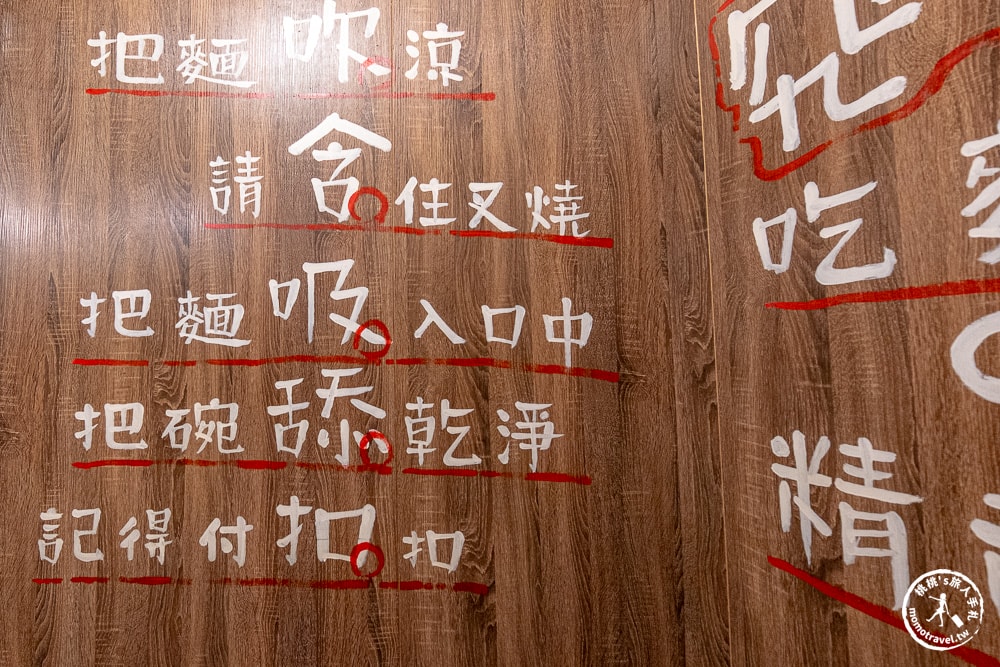 把麵吹涼
請含住叉燒
把麵吸入口中
把碗舔乾淨
記得付扣扣
吃
精
桃桃's旅人手札
momotravel.tw